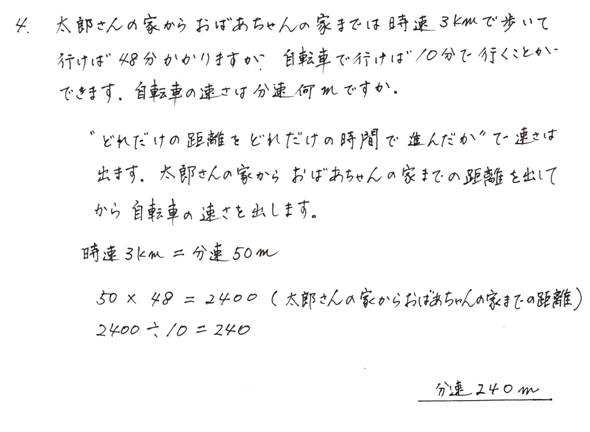 4. 太郎さんの家からおばあちゃんの家までは時速3kmで歩いて
行けば48分かかりますが、自転車で行けば10分で行くことが
できます。自転車の速さは分速何mですか。
"どれだけの距離をどれだけの時間で進んだか"で速さは
出ます。太郎さんの家からおばあちゃんの家までの距離を出して
から自転車の速さを出します。
時速3km=分速50m
50×48=2400(太郎さんの家からおばあちゃんの家までの距離)
2400÷10=240
分速240m